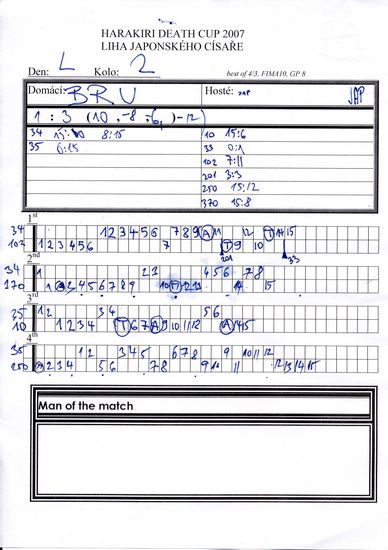 HARAKIRI DEATH CUP 2007
LIHA JAPONSKÉHO CÍSAŘE
Den: L Kolo: 2 best of 4/3, FIMA10, GP 8
Domácí: BRU Hosté: JAP JAP
1 : 3 (10, -8, -6, -12)
34 8:15 10 15:6
35 6:15 33 0:1
102 7:11
201 3:3
250 15:12
370 15:8
1st
34 1 2 3 4 5 6 7 8 9 A 11 12 T 14 15
102 1 2 3 4 5 6 7 T 9 10
201 33
2nd
34 1 2 3 4 5 6 7 8
170
3rd
35 1 2 3 4 5 6
10 1 2 3 4 T 6 7 A 9 10 11 12 A 14 15
4th
35 1 2 3 4 5 6 7 8 9 10 11 12
250 A 2 3 4 5 6 7 8 9 10 11 12 13 14 15
Man of the match